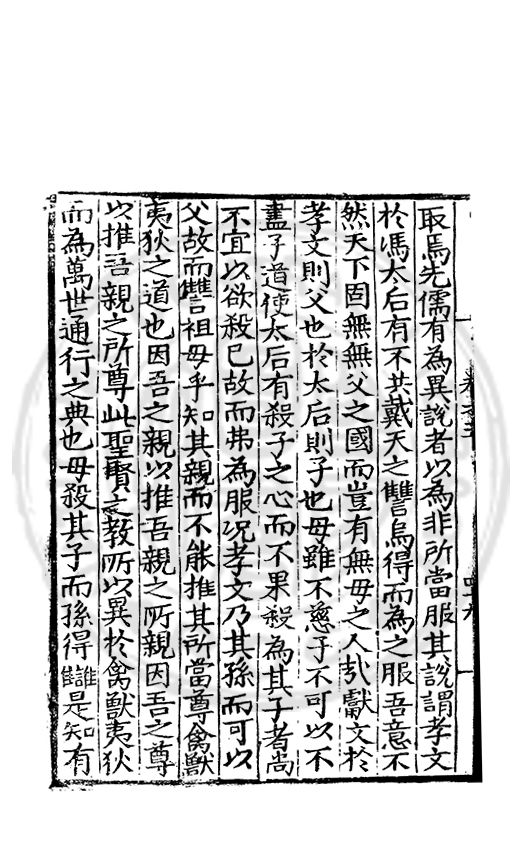 取焉先儒有為異說者以為非所當服其說謂孝文
於馮太后有不共戴天之讐烏得而為之服吾意不
然天下固無無父之國而豈有無母之人哉獻文於
孝文則父也於太后則子也母雖不慈子不可以不
盡子道使太后有殺子之心而不果殺為其子者尚
不宜以欲殺已故而弗為服况孝文乃其孫而可以
父故而讐祖母乎知其親而不能推其所當尊禽獸
夷狄之道也因吾之親以推吾親之所親因吾之尊
以推吾親之所尊此聖賢之教所以異於禽獸夷狄
而為萬世通行之典也母殺其子而孫得讎是知有